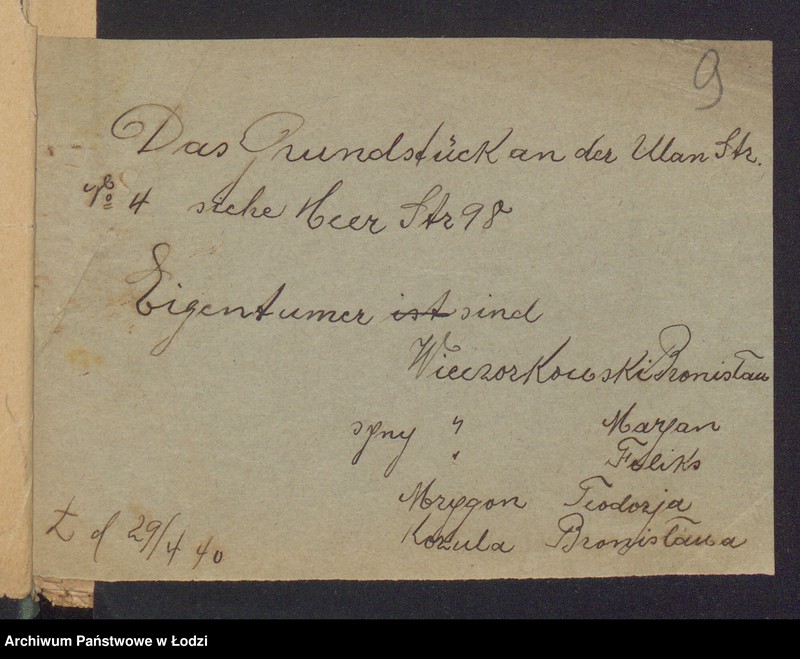 9
Das Grundstück an der Ulan Str.
No 4 siehe Heer Str 98
Eigentumer ist sind
Wieczorkowski Bronisław
syny " Maryan
" Feliks
Mrygon Teodozja
Kozula Bronisława
Ł d 29/4 40
Archiwum Państwowe w Łodzi